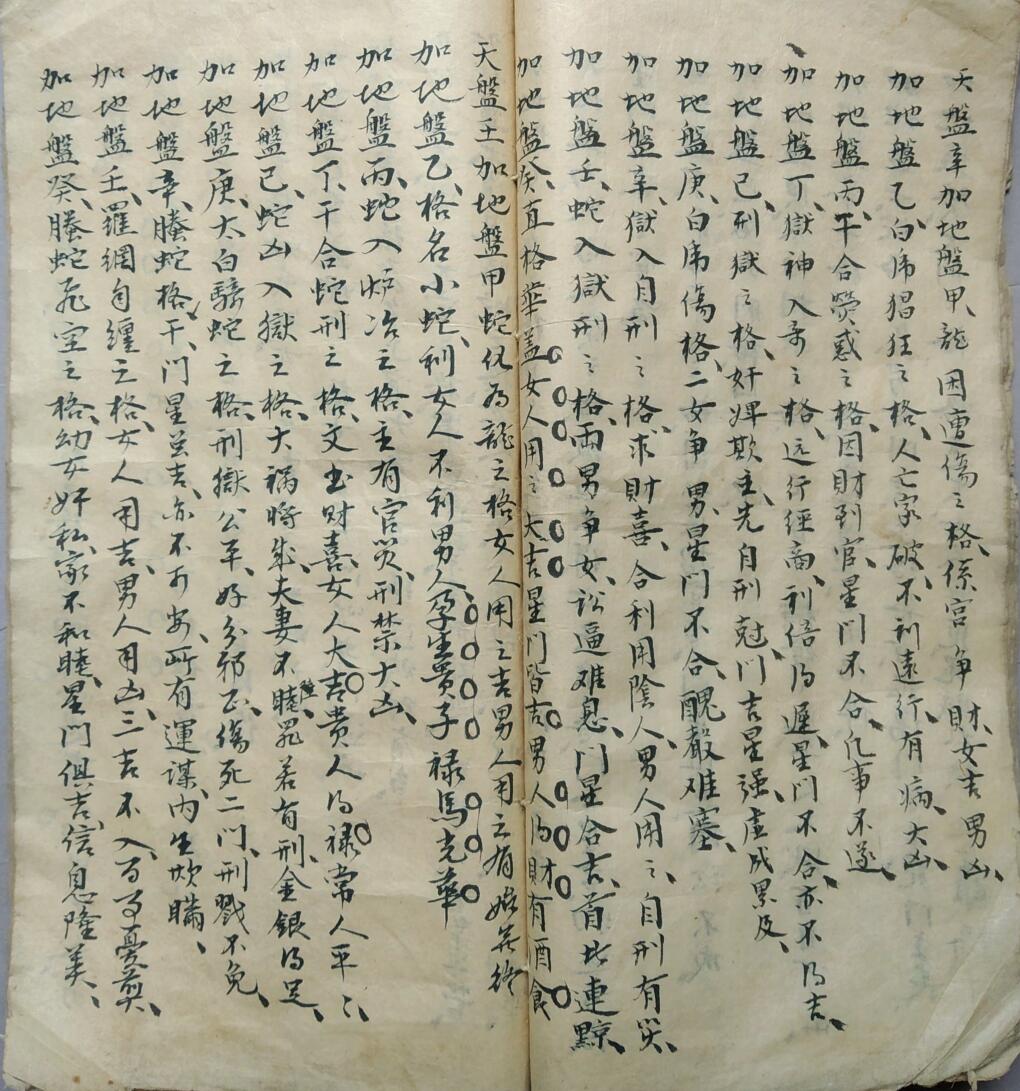 天盤辛加地盤甲、龍困遭傷之格、係宮争財、女吉男凶、
加地盤乙、白帍猖狂之格、人亡家破、不利遠行、有病、大凶、
加地盤丙、干合熒惑之格、因財到官、星門不合、凡事不遂、
加地盤丁、獄神入奇之格、远行經商、利倍为遲、星門不合、亦不为吉、
加地盤己、刑獄之格、奸婢欺主、先自刑尅、門吉星强、虚成累及、
加地盤庚、白帍傷格、二女争男、星門不合、醜聲难塞、
加地盤辛、獄入自刑之格、求財喜合利用陰人、男人用之、自刑有災、
加地盤壬、蛇入獄刑之格、兩男争女、訟逼难息、門星合吉、首比連黥、
加地盤癸、直格華盖女人用之大吉星門皆吉男人为財有酒食
天盤壬加地盤甲蛇化为龍之格女人用之吉男人用之有始無終
加地盤乙、格名小蛇、利女人不利男人、孕生贵子禄馬光華
加地盤丙、蛇入炉冶之格、主有官災、刑禁大凶、
加地盤丁、干合蛇刑之格、文书财喜、女人大吉贵人为禄常人平〻
加地盤己、蛇凶入獄之格、大禍將成、夫妻不睦、罪若有刑、金銀为足、
加地盤庚、太白騎蛇之格、刑獄公平、好分邪正、傷死二門、刑戮不免、
加地盤辛、螣蛇格干、門星虽吉、亦不可安、所有運謀、内生欺瞞、
加地盤壬、羅網自纏之格、女人用吉、男人用凶、三吉不入、百事憂煎、
加地盤癸、螣蛇飛空之格、幼女奸私、家不和睦、星門俱吉、信息隆美、